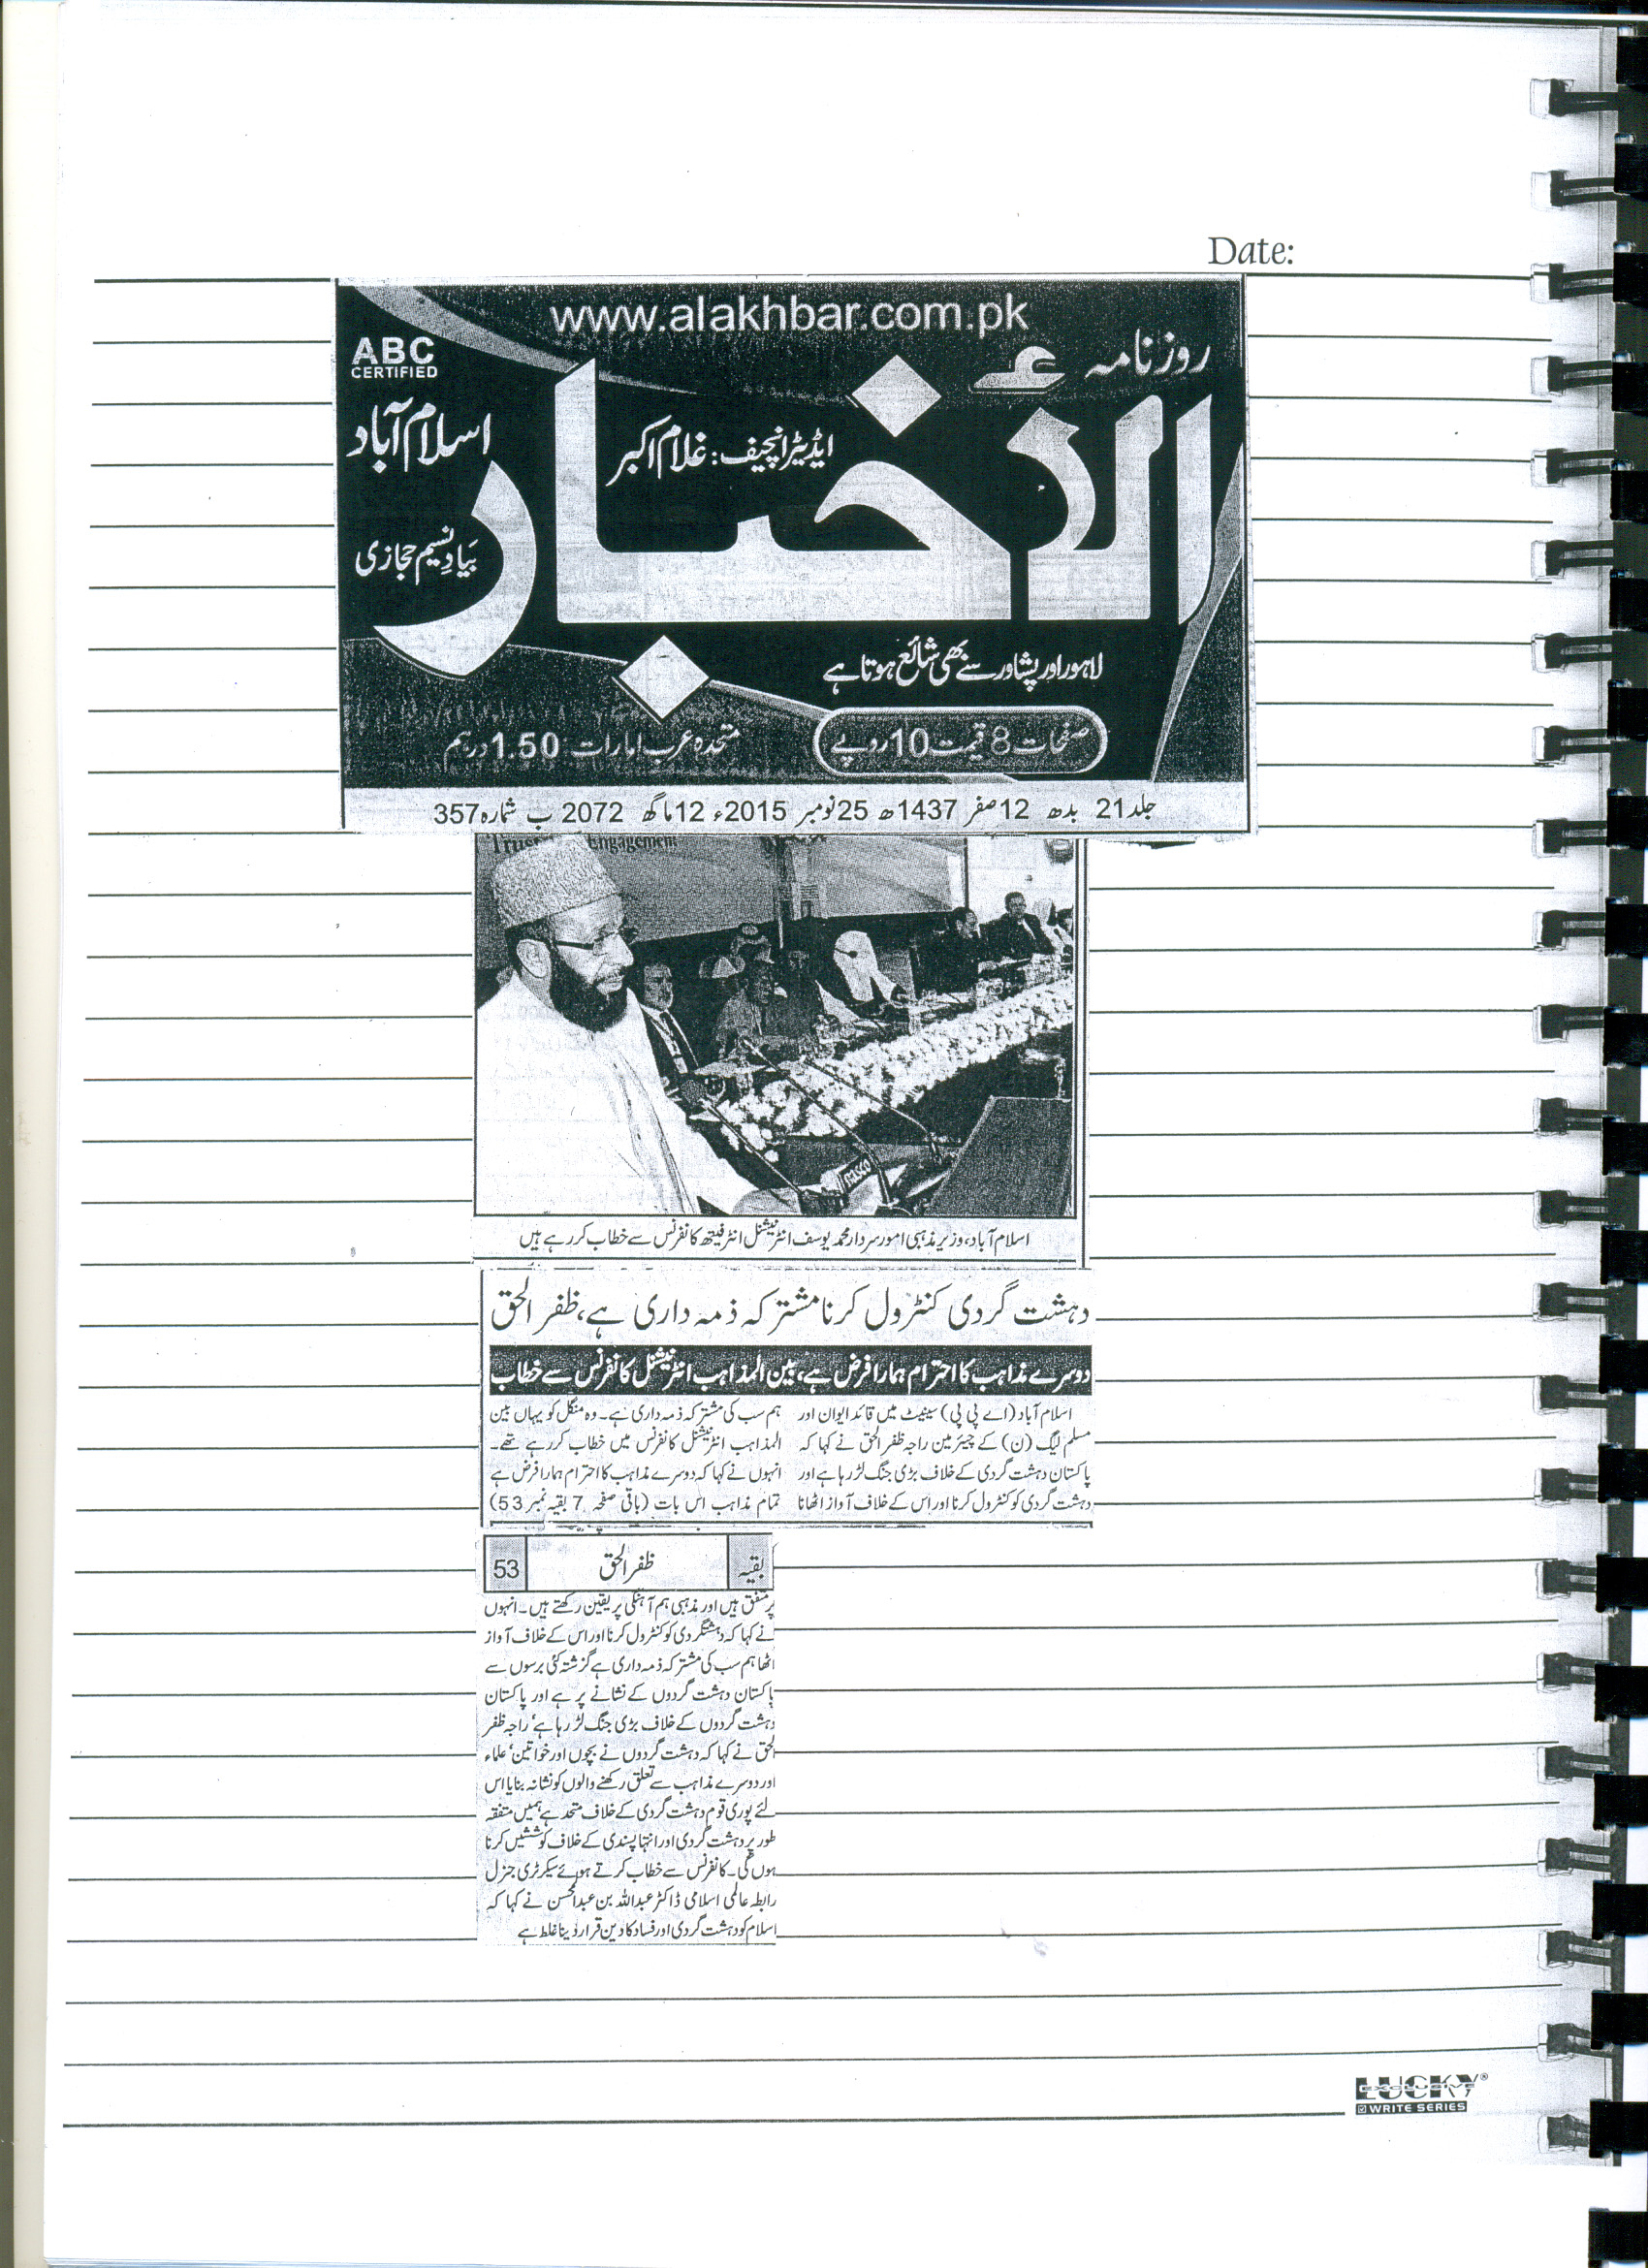 Date:
www.alakhbar.com.pk
ABC
CERTIFIED
روزنامہ
الاخبار
اسلام آباد
ایڈیٹر انچیف: غلام اکبر
بیاد نسیم حجازی
لاہور اور پشاور سے بھی شائع ہوتا ہے
صفحات 8 قیمت 10 روپے
متحدہ عرب امارات 1.50 درہم
جلد 21 بدھ 12 صفر 1437ھ 25 نومبر 2015ء 12 ماگھ 2072 ب شمارہ 357
Trust Engagement
اسلام آباد، وزیر مذہبی امور سردار محمد یوسف انٹرنیشنل انٹرفیتھ کانفرنس سے خطاب کر رہے ہیں
دہشت گردی کنٹرول کرنا مشترکہ ذمہ داری ہے، ظفر الحق
دوسرے مذاہب کا احترام ہمارا فرض ہے، بین المذاہب انٹرنیشنل کانفرنس سے خطاب
اسلام آباد (اے پی پی) سینیٹ میں قائد ایوان اور
مسلم لیگ (ن) کے چیئرمین راجہ ظفر الحق نے کہا کہ
پاکستان دہشت گردی کے خلاف بڑی جنگ لڑ رہا ہے اور
دہشت گردی کو کنٹرول کرنا اور اس کے خلاف آواز اٹھانا
ہم سب کی مشترکہ ذمہ داری ہے۔ وہ منگل کو یہاں بین
المذاہب انٹرنیشنل کانفرنس میں خطاب کر رہے تھے۔
انہوں نے کہا کہ دوسرے مذاہب کا احترام ہمارا فرض ہے
تمام مذاہب اس بات (باقی صفحہ 7 بقیہ نمبر 53)
بقیہ ظفر الحق 53
پر متفق ہیں اور مذہبی ہم آہنگی پر یقین رکھتے ہیں۔ انہوں
نے کہا کہ دہشتگردی کو کنٹرول کرنا اور اس کے خلاف آواز
اٹھا ہم سب کی مشترکہ ذمہ داری ہے گزشتہ کئی برسوں سے
پاکستان دہشت گردوں کے نشانے پر ہے اور پاکستان
دہشت گردوں کے خلاف بڑی جنگ لڑ رہا ہے' راجہ ظفر
الحق نے کہا کہ دہشت گردوں نے بچوں اور خواتین' علماء
اور دوسرے مذاہب سے تعلق رکھنے والوں کو نشانہ بنایا اس
لئے پوری قوم دہشت گردی کے خلاف متحد ہے ہمیں متفقہ
طور پر دہشت گردی اور انتہا پسندی کے خلاف کوششیں کرنا
ہوں گی۔ کانفرنس سے خطاب کرتے ہوئے سیکرٹری جنرل
رابطہ عالمی اسلامی ڈاکٹر عبداللہ بن عبدالمحسن نے کہا کہ
اسلام کو دہشت گردی اور فساد کا دین قرار دینا غلط ہے
LUCKY
EXCLUSIVE
WRITE SERIES